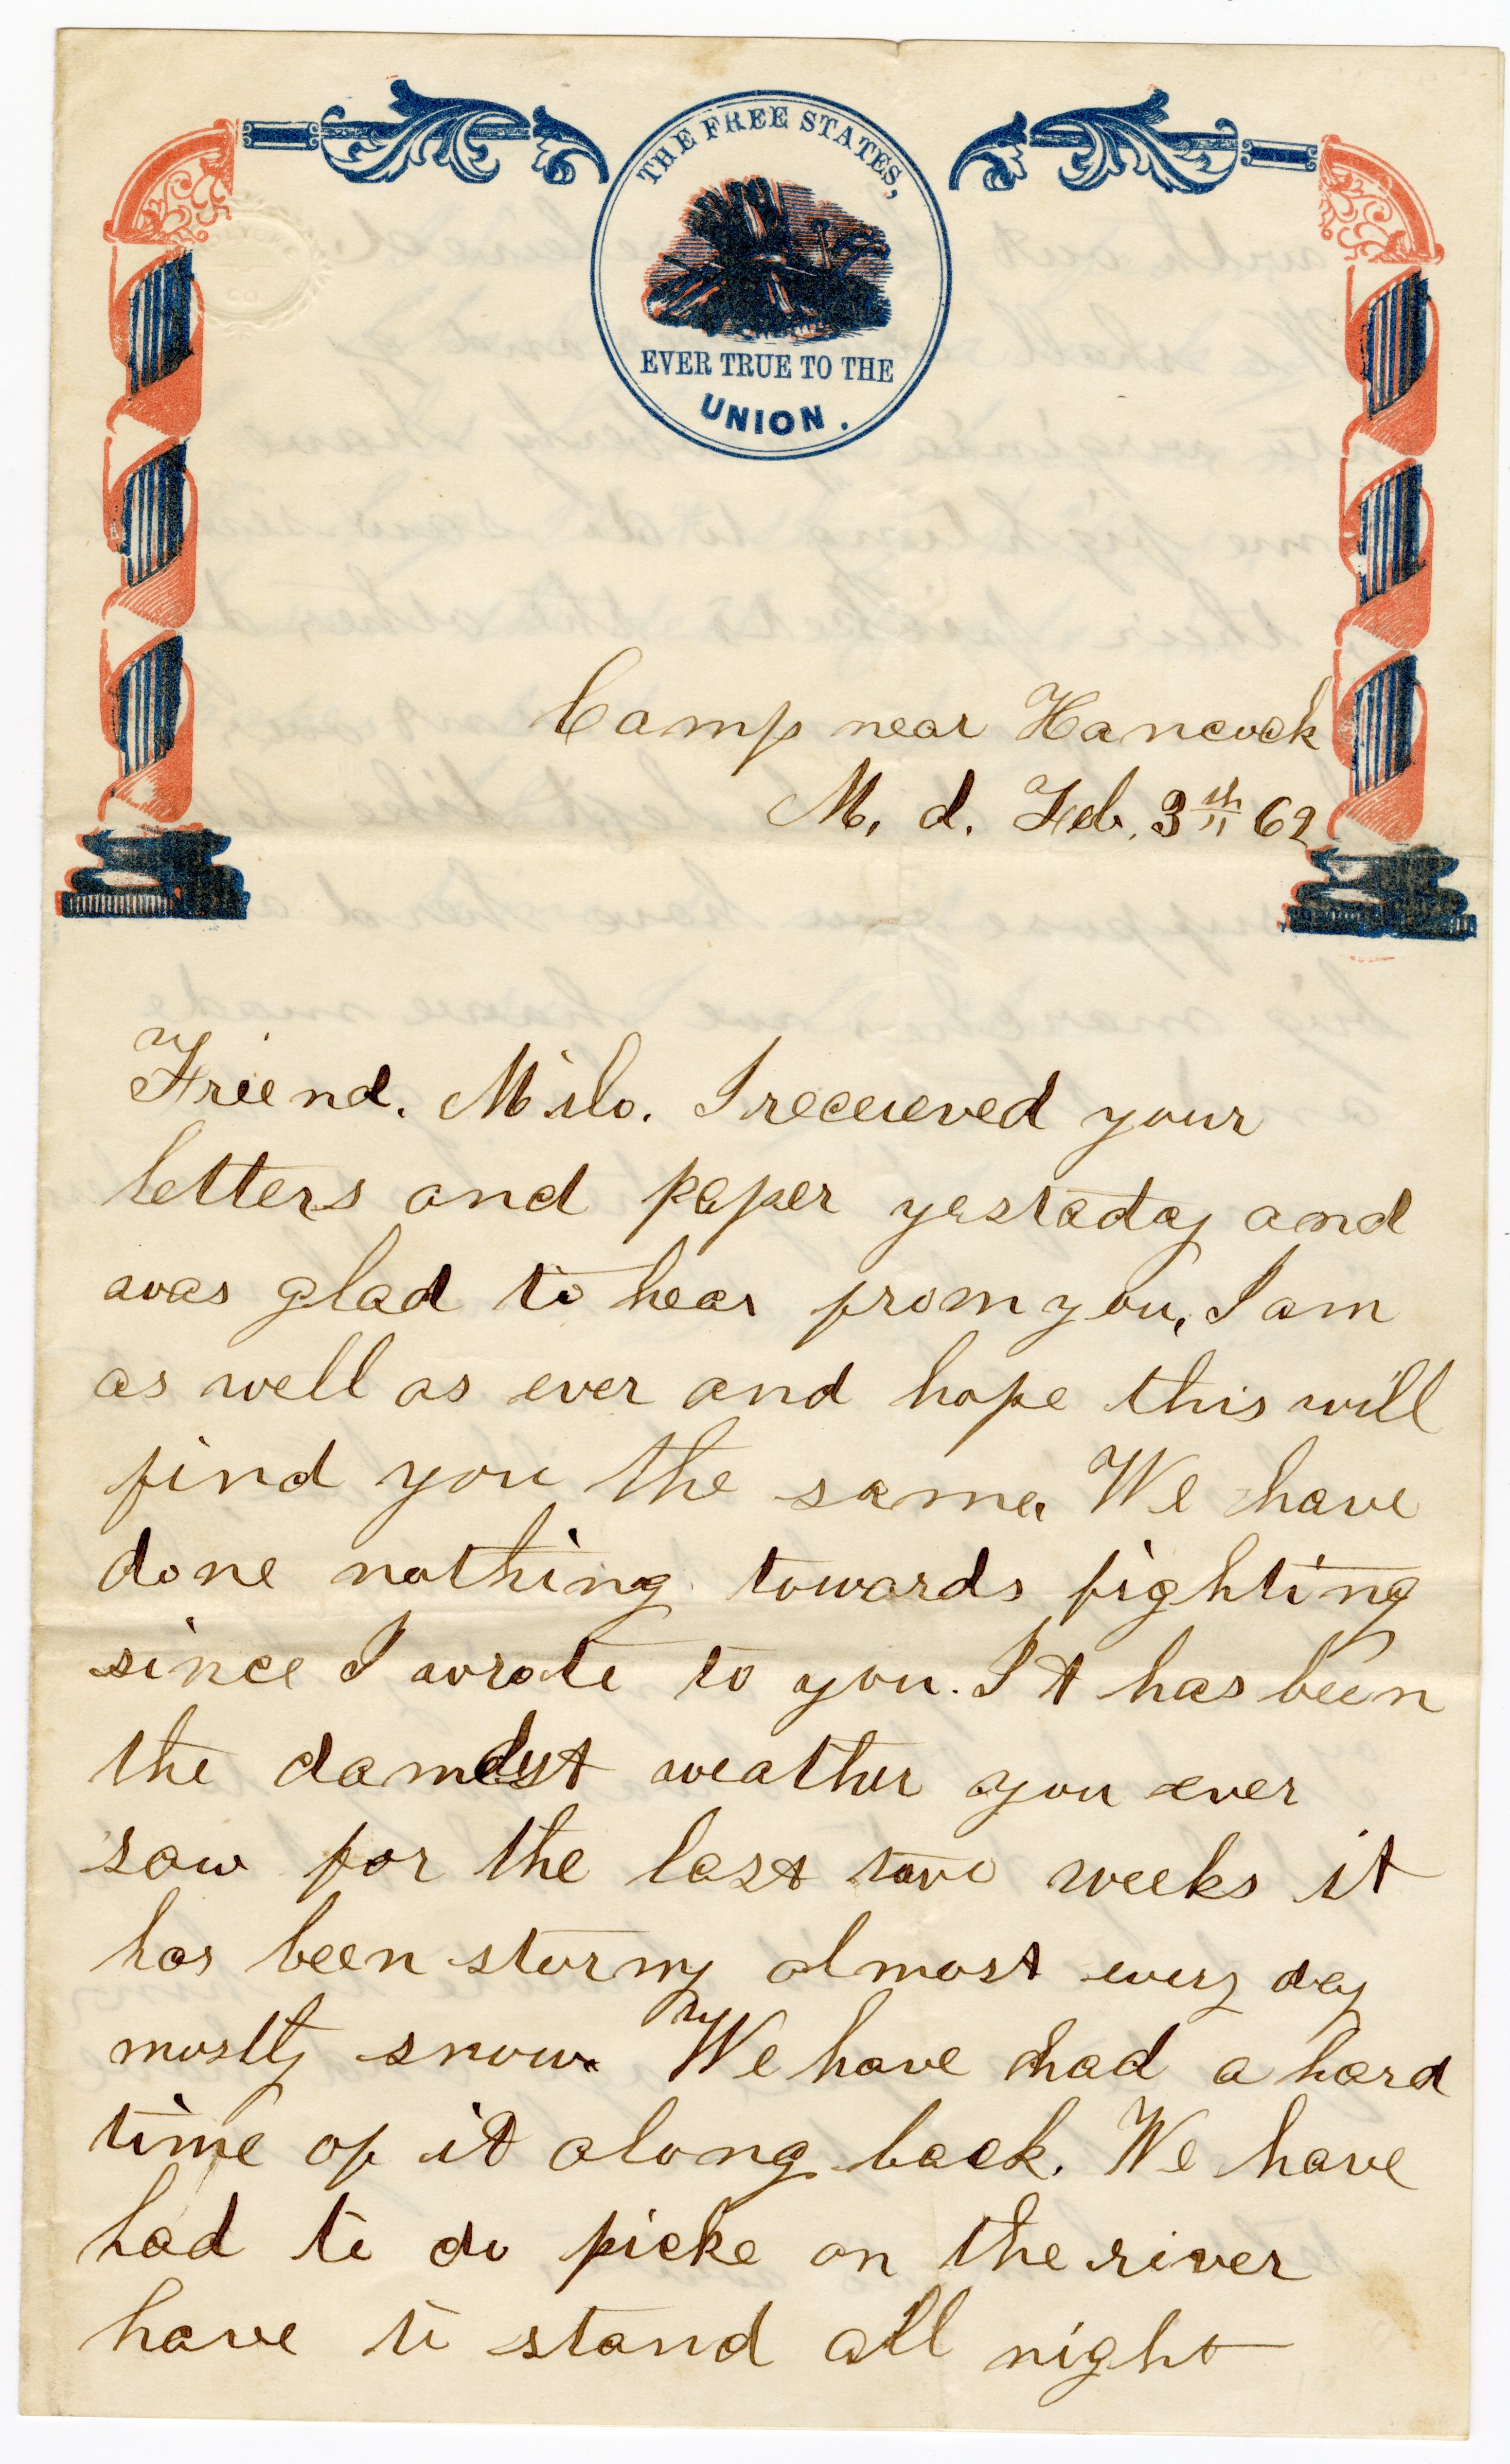 THE FREE STATES,
EVER TRUE TO THE
UNION.
Camp near Hancock
M. d. Feb. 3th 62
Friend. Milo. I receieved your
letters and paper yestaday and
was glad to hear from you, I am
as well as ever and hope this will
find you the same. We have
done nothing towards fighting
since I wrote to you. It has been
the damdest weather you ever
saw for the last two weeks it
has been stormy almost every day
mostly snow. We have had a hard
time of it along back. We have
had to do picke on the river
have to stand all night